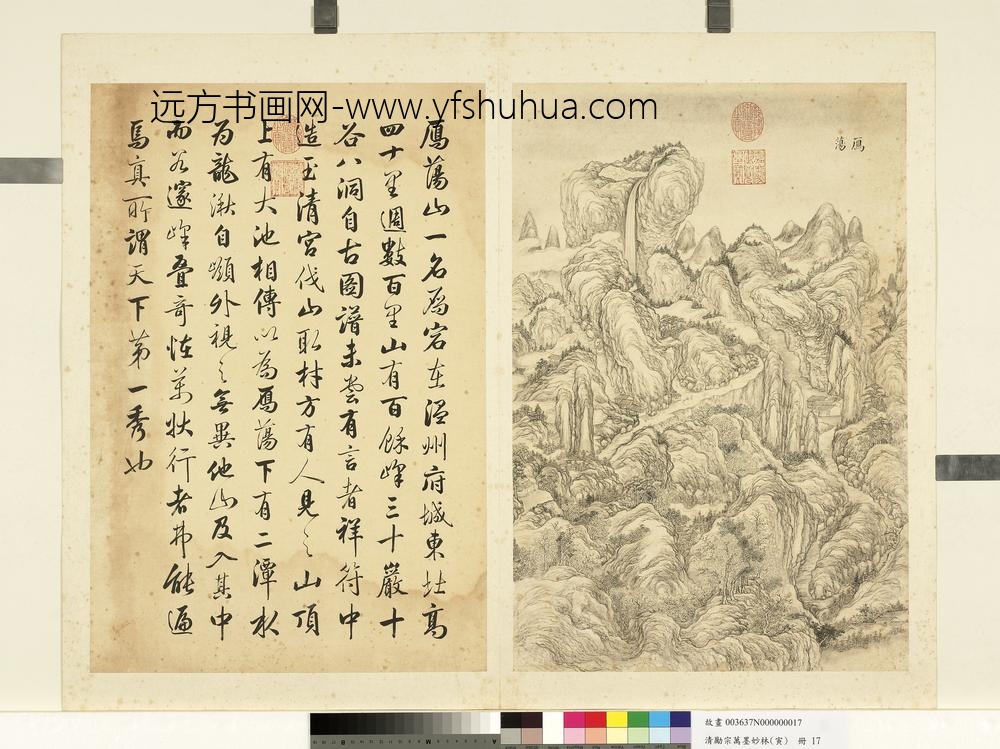 远方书画网-www.yfshuhua.com
鴈蕩
鴈蕩山一名鴈宕在温州府城東北高
四十里週數百里山有百餘峰三十巖十
谷八洞自古圖譜未嘗有言者祥符中
造玉清宮伐山取材方有人見之山頂
上有大池相傳以為鴈蕩下有二潭水
为龍湫自嶺外視之無異他山及入其中
而谷邃峰叠奇怪萬狀行者弗能遍
焉真所謂天下第一秀也
故畫 003637N000000017
清勵宗萬墨妙林(寅) 冊 17